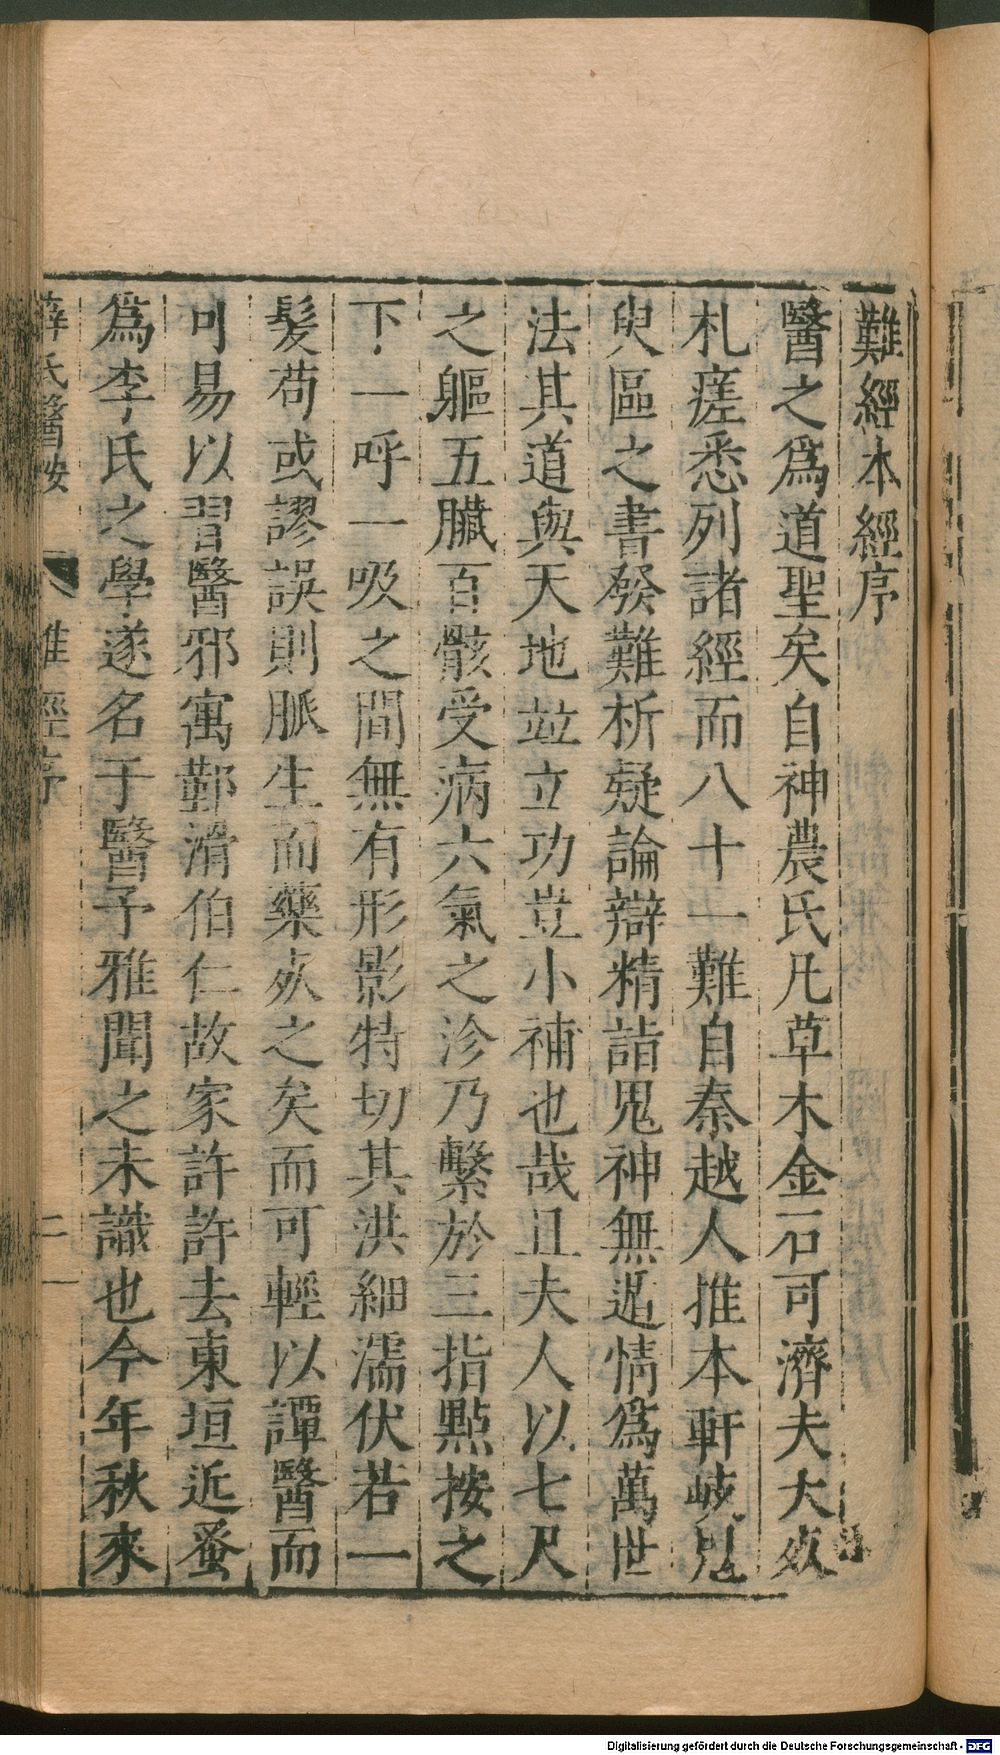 難經本經序
醫之爲道聖矣自神農氏凡草木金石可濟夫大歿
札瘥悉列諸經而八十一難自秦越人推本軒岐鬼
臾區之書發難析疑論辯精詣鬼神無遁情爲萬世
法其道與天地竝立功豈小補也哉且夫人以七尺
之軀五臟百骸受病六氣之沴乃繫於三指㸃按之
下一呼一吸之間無有形影特切其洪細濡伏若一
髪苟或謬誤則脈生而藥歿之矣而可輕以譚醫而
可易以習醫邪寓鄞滑伯仁故家許許去東垣近蚤
爲李氏之學遂名于醫予雅聞之未識也今年秋來
薛氏醫按 難經序 二一
Digitalisierung gefördert durch die Deutsche Forschungsgemeinschaft - DFG